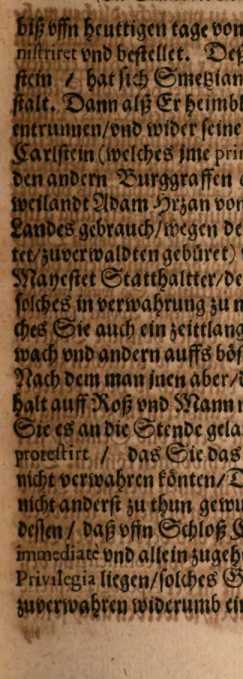 biß vffn heuttigen tage von
nistriret vnd bestellet. Deß
stein / hat sich Smetzian
stalt. Dann alß Er heimbl
entrunnen/vnd wider seine
Carlstein (welches jme pri
den andern Burggraffen
weilandt Adam Hrzan von
Landes gebrauch/wegen de
tet/zuverwaldten gebüret)
Mayestet Statthaltter/de
solches in verwahrung zu n
ches Sie auch ein zeittlang
wach vnd andern auffs böß
Nach dem man jnen aber/
halt auff Roß vnd Mann
Sie es an die Stende gela
protestirt / das Sie das
nicht verwahren könten/D
nicht anderst zu thun gewu
dessen / daß vffn Schloß
immediatè vnd allein zugeh
Privilegia liegen/solches
zuverwahren widerumb ein